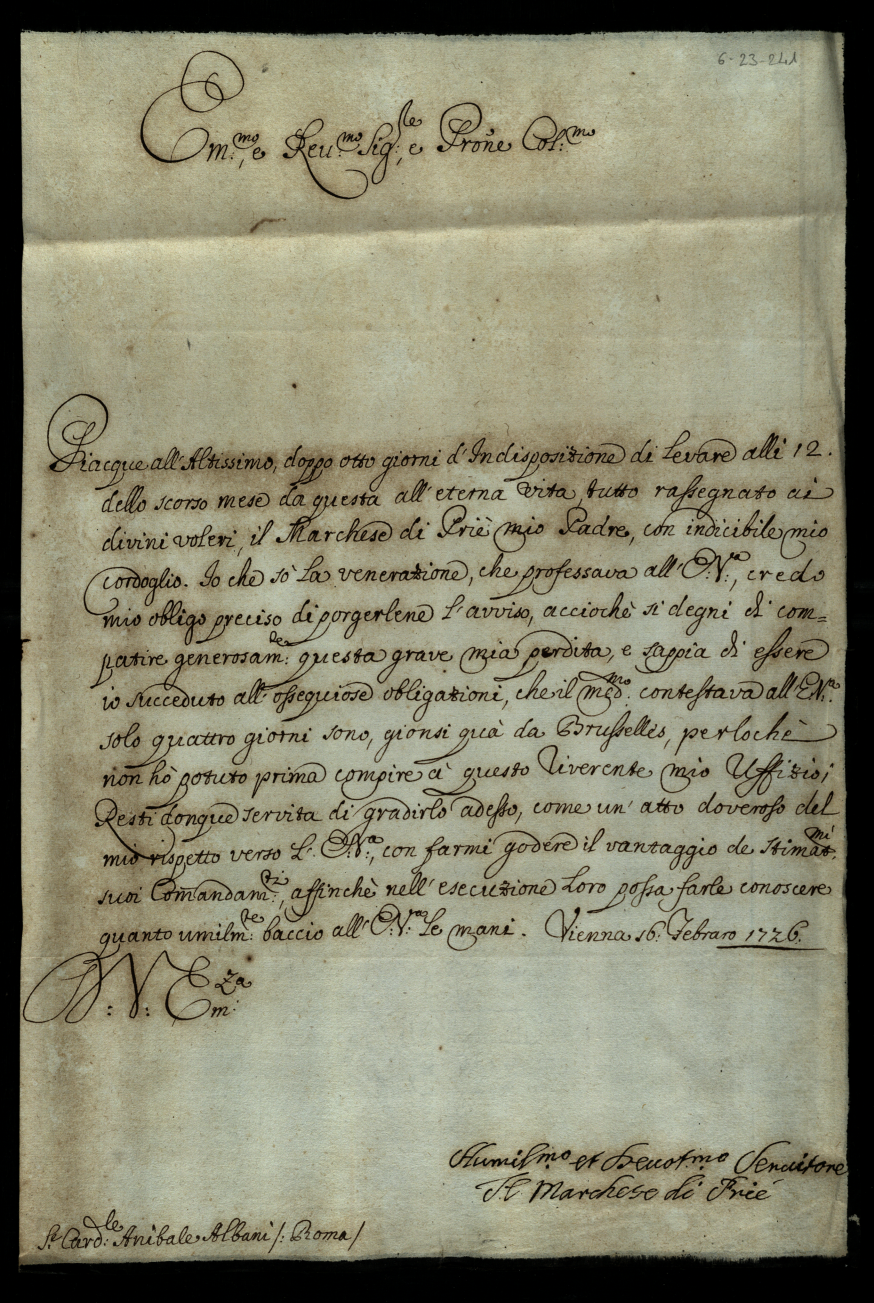 6-23-241
Em:mo, e Reu:mo Sig:re, e Prone Col:mo
Piacque all'Altissimo, doppo otto giorni d'Indisposizione di levare alli 12.
dello scorso mese da questa all'eterna vita, tutto rassegnato ai
divini voleri, il Marchese di Priè mio Padre, con indicibile mio
cordoglio. Io che sò la venerazione, che professava all'E:V:a, credo
mio obligo preciso di porgerlene l'avviso, acciochè si degni di com=
patire generosam:te questa grave mia perdita, e sappia di essere
io succeduto all'ossequiose obligazioni, che il med:mo contestava all'E:V:a.
solo quattro giorni sono, gionsi quà da Brusselles, perlochè
non hò potuto prima compire à questo riverente mio Uffizio;
Resti donque servita di gradirlo adesso, come un'atto doveroso del
mio rispetto verso l'E:V:a, con farmi godere il vantaggio de stimat:mi
suoi Comandam:ti, affinchè nell'esecuzione loro possa farle conoscere
quanto umilm:te baccio all'E:V:a le mani. Vienna 16. Febraro 1726.
D: V: Em:za
Humil:mo et Deuot:mo Seruitore
Il Marchese di Prié
Sr Card:le Anibale Albani /: Roma/